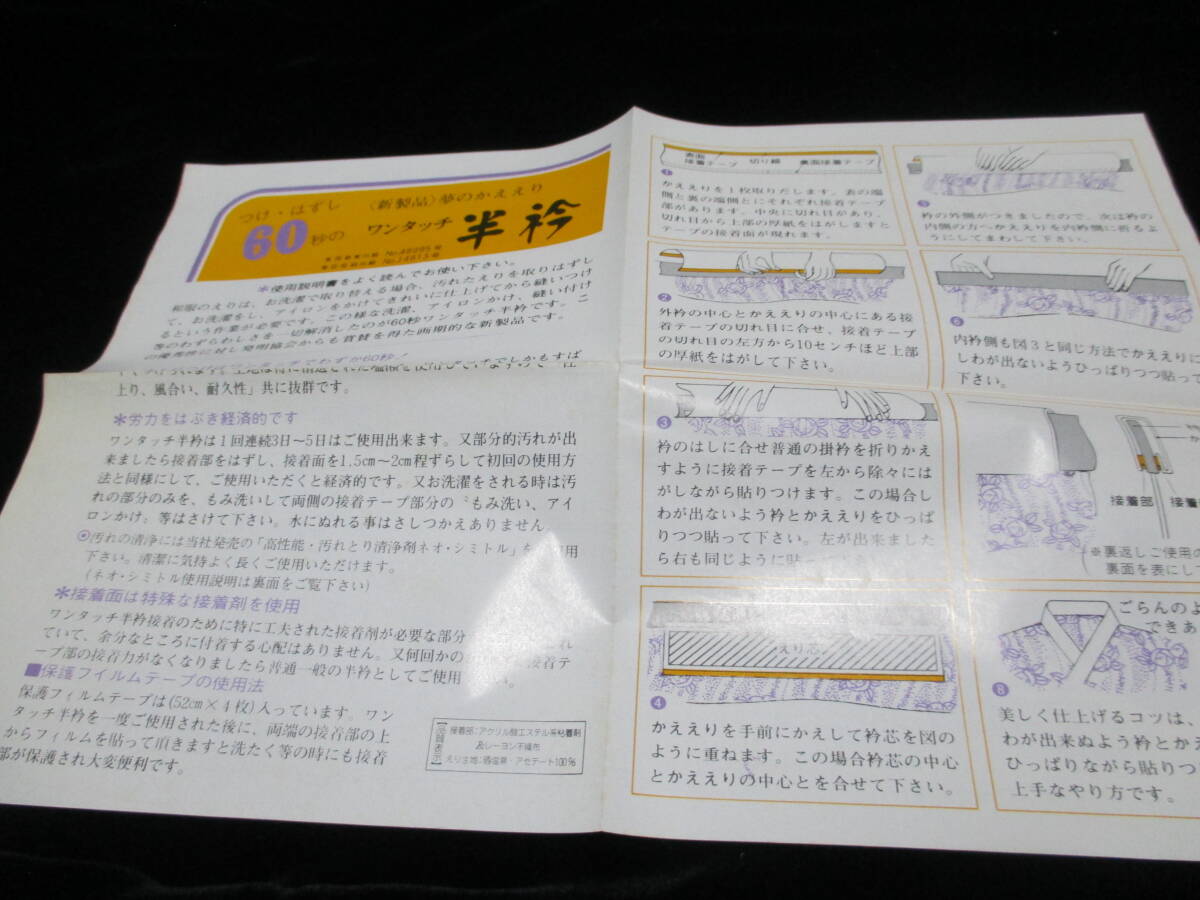 つけ・はずし 〈新製品〉夢のかええり
60秒の ワンタッチ 半衿
*使用説明書をよく読んでお使い下さい。
和服のえりは、お洗濯で取り替える場合、汚れたえりを取りはずし
て、お洗濯をし、アイロンをかけてきれいに仕上げてから縫いつけ
るという作業が必要です。この様な洗濯、アイロンかけ、縫い付け
等のわずらわしさを一切解消したのが60秒ワンタッチ半衿です。こ
の優秀性に対し発明協会からも賞賛を得た画期的な新製品です。
上り、風合い、耐久性」共に抜群です。
*労力をはぶき経済的です
ワンタッチ半衿は1回連続3日〜5日はご使用出来ます。又部分的汚れが出
来ましたら接着部をはずし、接着面を1.5cm〜2cm程ずらして初回の使用方
法と同様にして、ご使用いただくと経済的です。又お洗濯をされる時は汚
れの部分のみを、もみ洗いして両側の接着テープ部分の〝もみ洗い、アイ
ロンかけ〟等はさけて下さい。水にぬれる事はさしつかえありません。
◉汚れの清浄には当社発売の「高性能・汚れとり清浄剤ネオ・シミトル」を 用
下さい。清潔に気持よく長くご使用いただけます。
(ネオ・シミトル使用説明は裏面をご覧下さい)
*接着面は特殊な接着剤を使用
ワンタッチ半衿接着のために特に工夫された接着剤が必要な部分
ていて、余分なところに付着する心配はありません。又何回かの 接着テ
ープ部の接着力がなくなりましたら普通一般の半衿としてご使用 い。
■保護フイルムテープの使用法
保護フィルムテープは(52cm×4枚)入っています。ワン
タッチ半衿を一度ご使用された後に、両端の接着部の上
からフィルムを貼って頂きますと洗たく等の時にも接着
部が保護され大変便利です。
品質表示
接着部:アクリル酸エステル系粘着剤
及レーヨン不織布
えり生地:塩縮・アセテート100%
表面接着テープ 切り線 裏面接着テープ
❶
かええりを1枚取りだします。表の端
側と裏の端側とにそれぞれ接着テープ
部があります。中央に切れ目があり、
切れ目から上部の厚紙をはがしますと
テープの接着面が現れます。
❷
外衿の中心とかええりの中心にある接
着テープの切れ目に合せ、接着テープ
の切れ目の左方から10センチほど上部
の厚紙をはがして下さい。
❸
衿のはしに合せ普通の掛衿を折りかえ
すように接着テープを左から除々には
がしながら貼りつけます。この場合し
わが出ないよう衿とかええりをひっぱ
りつつ貼って下さい。左が出来ました
ら右も同じように貼っ
えり芯
❹
かええりを手前にかえして衿芯を図の
ように重ねます。この場合衿芯の中心
とかええりの中心とを合せて下さい。
❺
衿の外側がつきましたので、次は衿の
内側の方へかええりを内衿側に折るよ
うにしてまわして下さい。
❻
内衿側も図3と同じ方法でかええりに
しわが出ないようひっぱりつつ貼って
下さい。
接着部 接着
※裏返しご使用の
裏面を表にして
ごらんのよ
できあ
❽
美しく仕上げるコツは、
わが出来ぬよう衿とかえ
ひっぱりながら貼りつ
上手なやり方です。